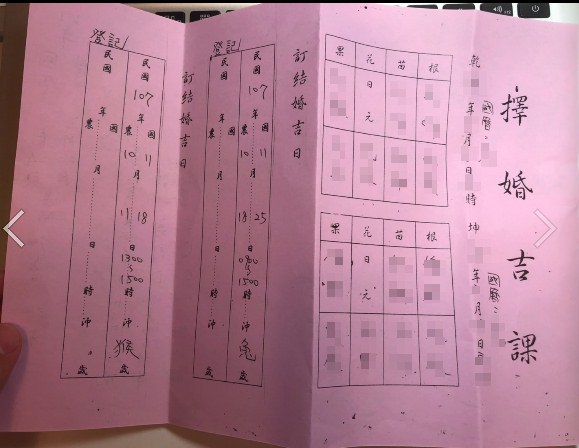 擇婚吉課
乾 年 月 日 時 坤 年 月 日
國曆：
國曆：
根 苗 花 果
日元
根 苗 花 果
日元
訂結婚吉日
登記
民國 107 年 國 11 月 25 日 0900 ~ 1500 時 沖 兔 歲
農 10 18
民國 年 月 日 時 沖 歲
農
訂結婚吉日
登記
民國 107 年 國 11 月 18 日 1300 ~ 1500 時 沖 猴 歲
農 10 11
民國 年 月 日 時 沖 歲
農